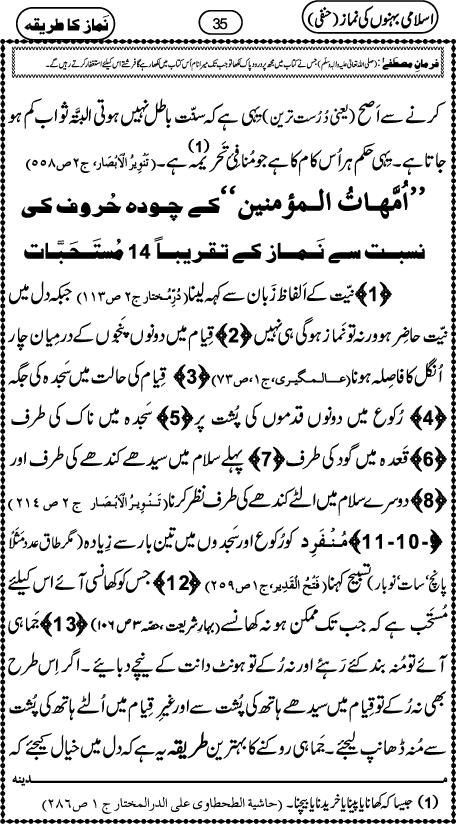 اسلامی بہنوں کی نماز (حنفی)
35
نَماز کا طریقہ
فرمانِ مصطفےٰ: (صلی اللہ تعالیٰ علیہ والہٖ وسلّم) جس نے کتاب میں مجھ پر درود پاک لکھا تو جب تک میرا نام اُس کتاب میں لکھا رہے گا فرشتے اس کیلئے استغفار کرتے رہیں گے۔
کرنے سے اَصح (یعنی دُرُست ترین) یہی ہے کہ سنّت باطِل نہیں ہوتی البتَّہ ثواب کم ہو
جاتا ہے۔ یہی حکم ہر اُس کام کا ہے جو مُنافیِ تَحریمہ (1) ہے۔ (تَنْوِیرُ الْاَبْصَار، ج۲ ص۵۵۸)
”اُمَّهاتُ الـمـؤمنین“ کے چودہ حُروف کی
نسبت سے نَـمـاز کے تقریباً 14 مُستَحَبَّات
﴿1﴾ نیّت کے اَلفاظ زَبان سے کہہ لینا (دُرِّمُختار ج۲ ص۱۱۳) جبکہ دل میں
نیّت حاضِر ہو ورنہ تو نَماز ہو گی ہی نہیں ﴿2﴾ قِیام میں دونوں پنجوں کے درمِیان چار
اُنگل کا فاصِلہ ہونا (عالمگیری، ج۱، ص۷۳) ﴿3﴾ قِیام کی حالت میں سَجدہ کی جگہ
﴿4﴾ رُکوع میں دونوں قدموں کی پُشت پر ﴿5﴾ سَجدہ میں ناک کی طرف
﴿6﴾ قَعدہ میں گود کی طرف ﴿7﴾ پہلے سلام میں سیدھے کندھے کی طرف اور
﴿8﴾ دوسرے سلام میں اُلٹے کندھے کی طرف نظر کرنا (تَـنْوِیرُ الْاَبْصَار ج۲ ص۲۱٤)
﴿۔10-11﴾ مُنْفَرِد کو رُکوع اور سَجدوں میں تین بار سے زیادہ (مگر طاق عدد مَثَلاً
پانچ، سات، نو بار) تسبیح کہنا (فَتْحُ الْقَدِیر، ج۱ ص۲۵۹) ﴿12﴾ جس کو کھانسی آئے اس کیلئے
مُستَحَب ہے کہ جب تک ممکن ہو نہ کھانسے (بہارِ شریعت، حصّہ ۳ ص۱۰۶) ﴿13﴾ جَماہی
آئے تو مُنہ بند کئے رَہئے اور نہ رُکے تو ہونٹ دانت کے نیچے دبائیے۔ اگر اِس طرح
بھی نہ رُکے تو قِیام میں سیدھے ہاتھ کی پُشت سے اور غیرِ قِیام میں اُلٹے ہاتھ کی پُشت
سے مُنہ ڈھانپ لیجئے۔ جَماہی روکنے کا بہترین طریقہ یہ ہے کہ دل میں خیال کیجئے کہ
مـدینہ
(1) جیسا کہ کھانا یا پینا یا خریدنا یا بیچنا۔ (حاشیة الطحطاوی علی الدرالمختار ج ۱ ص ۲۸۶)